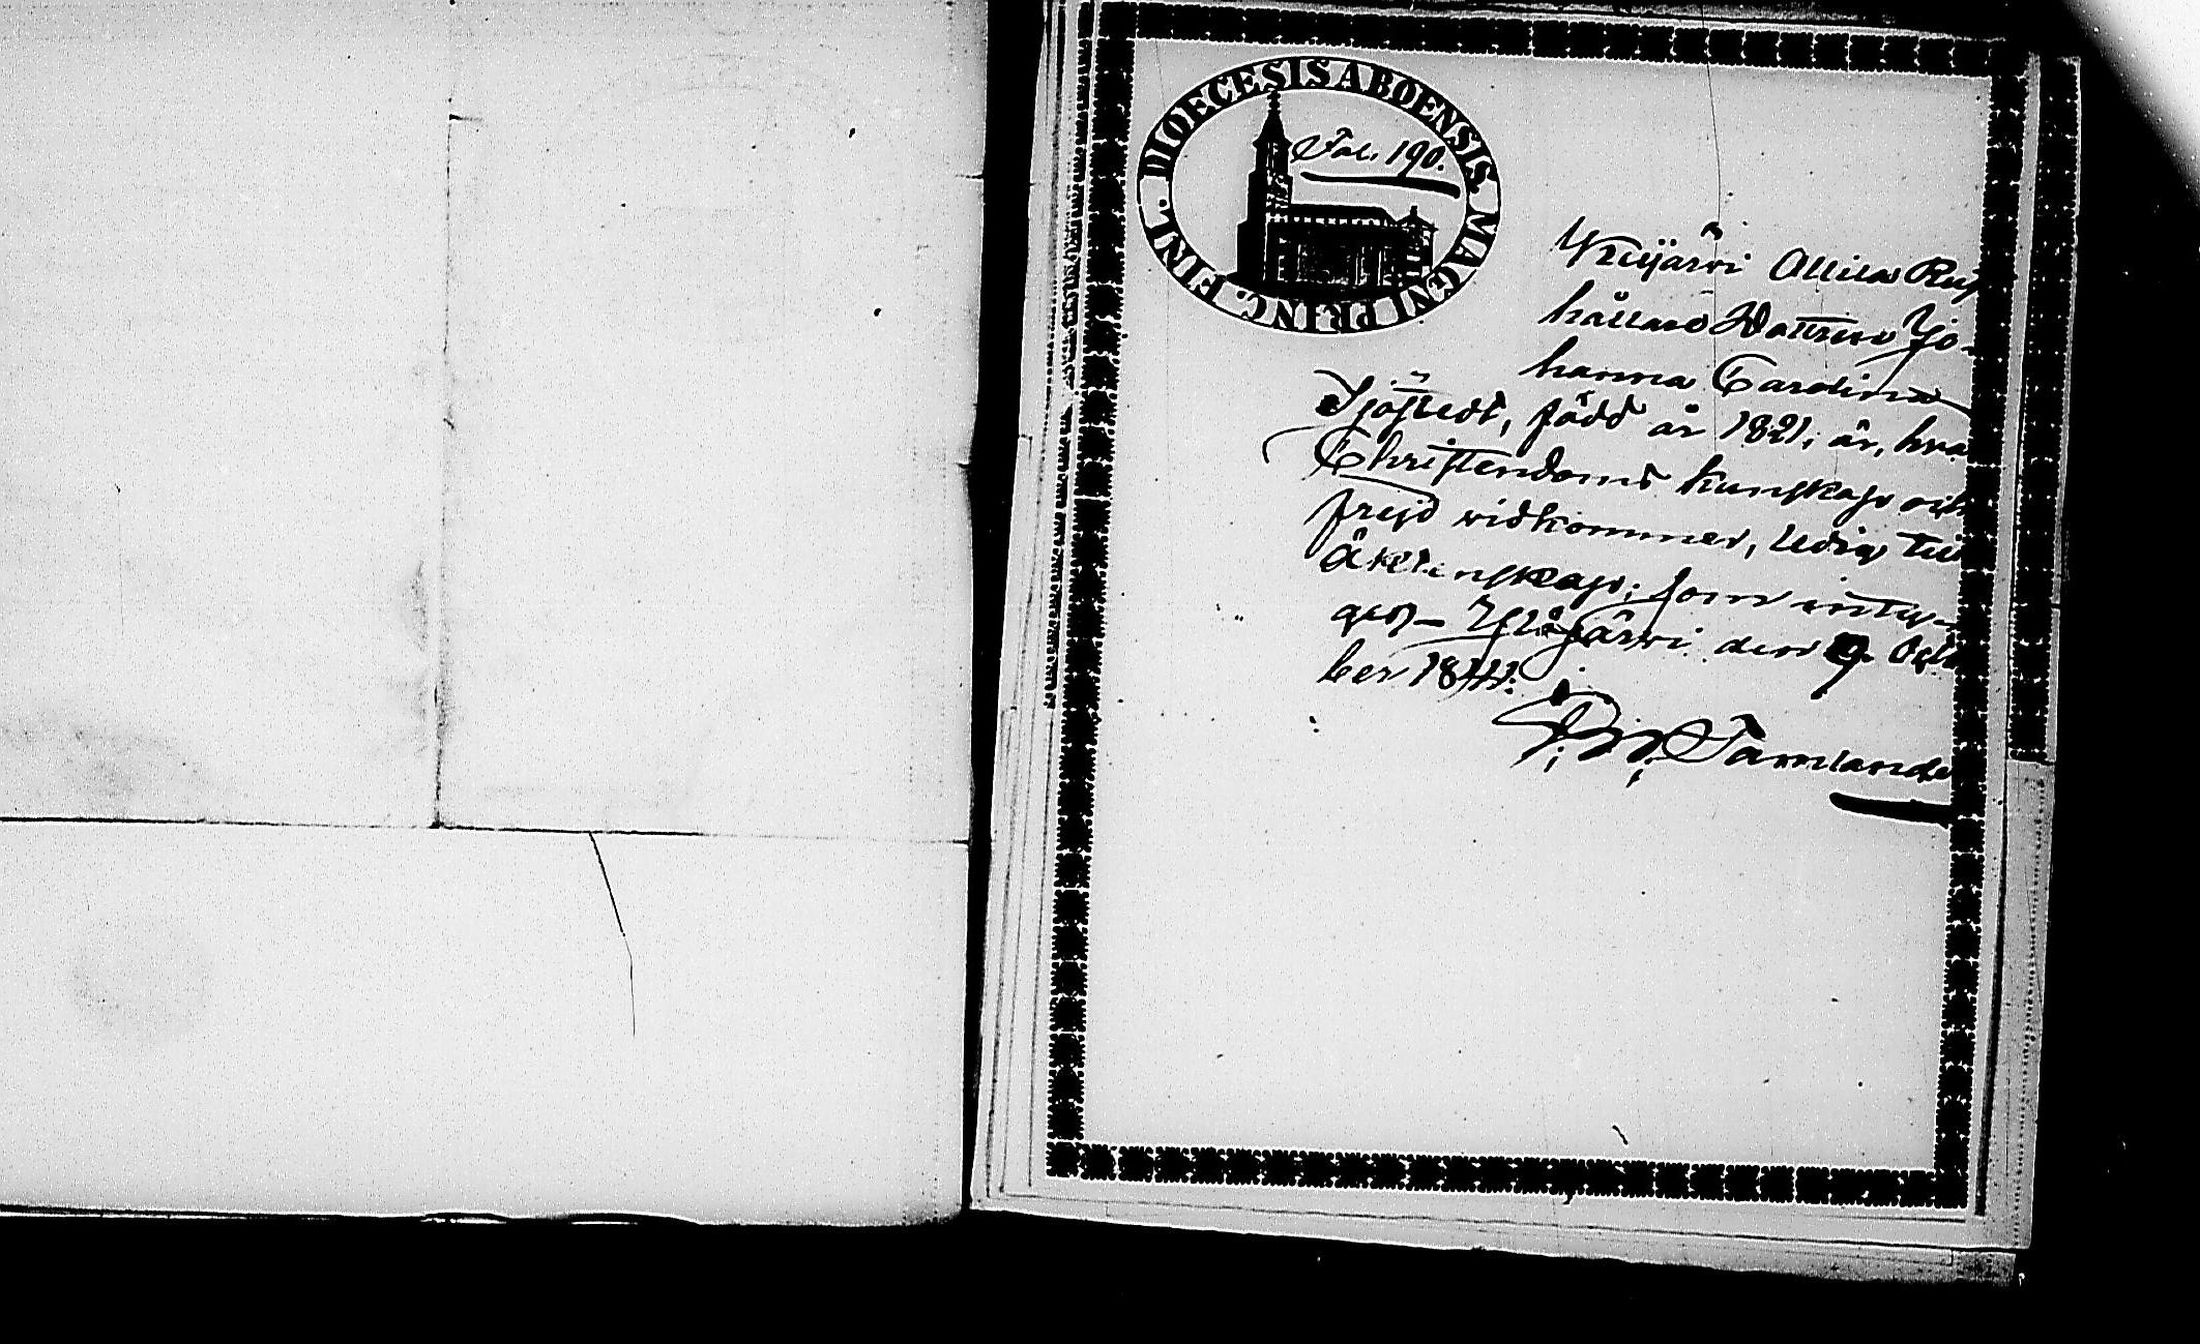 DIOECESIS ABOENSIS. MAGNI PRINC. FINL.
Fol. 190.
Allila Rus
hållare Dottren Jo-
hanna Carolina
Sjöstedt, född år 1821, är, hva
Christendoms kunskap och
frejd widkommer, ledig till
äktenskap; som inty-
gas _ Ylöjärwi den 9. Octo
ber 1841.
Tammelande